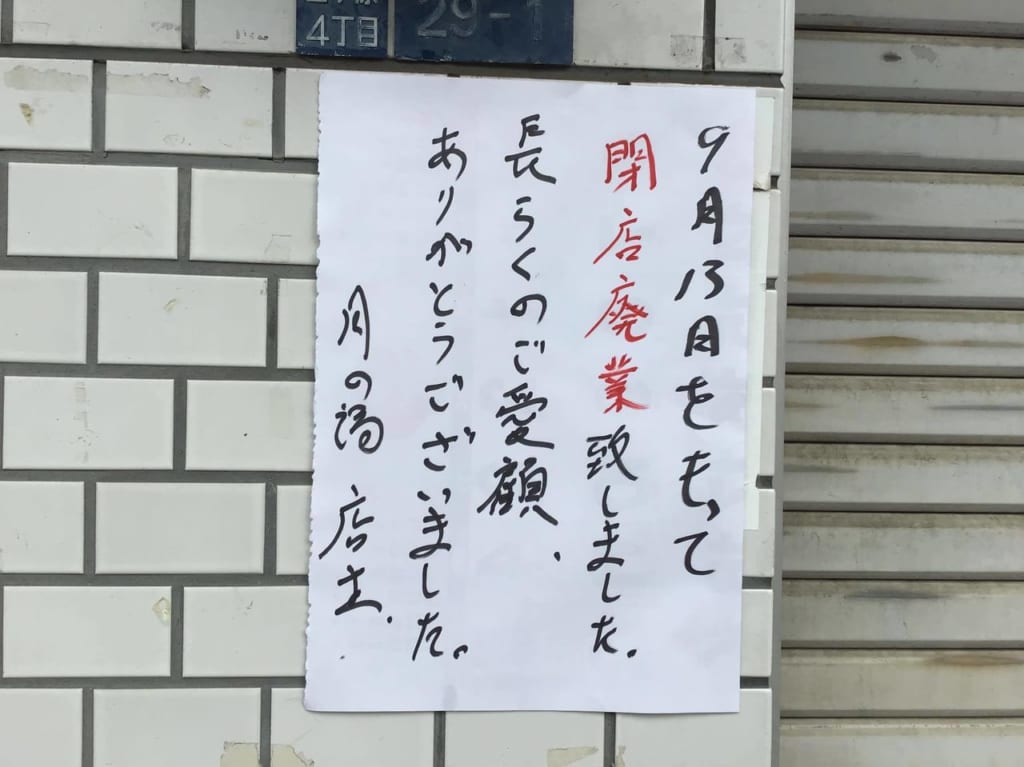 4丁目
29-1
9月13日をもって
閉店廃業致しました。
長らくのご愛顧、
ありがとうございました。
月の湯 店主.